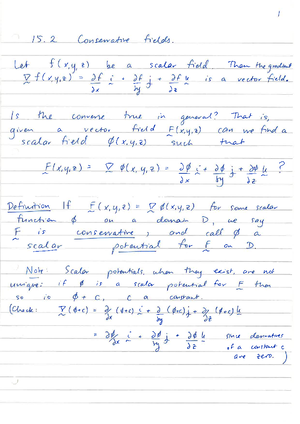 1
15.2 Conservative fields.
Let f(x,y,z) be a scalar field. Then the gradient
∇f(x,y,z) = ∂f/∂x i + ∂f/∂y j + ∂f/∂z k is a vector field.
Is the converse true in general? That is,
given a vector field F(x,y,z) can we find a
scalar field φ(x,y,z) such that
F(x,y,z) = ∇φ(x,y,z) = ∂φ/∂x i + ∂φ/∂y j + ∂φ/∂z k ?
Definition If F(x,y,z) = ∇φ(x,y,z) for some scalar
function φ on a domain D, we say
F is conservative, and call φ a
scalar potential for F on D.
Note Scalar potentials, when they exist, are not
unique: if φ is a scalar potential for F then
so is φ + c, c a constant.
(Check: ∇(φ+c) = ∂/∂x (φ+c) i + ∂/∂y (φ+c) j + ∂/∂z (φ+c) k
= ∂φ/∂x i + ∂φ/∂y j + ∂φ/∂z k since derivatives
of a constant c
are zero.)